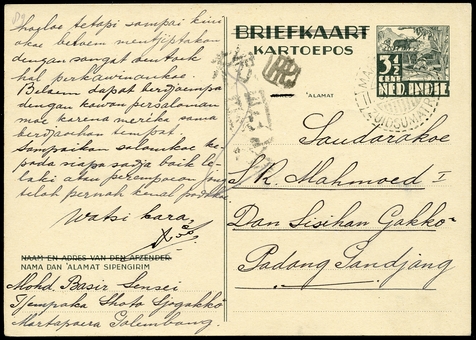 hagloe tetapi sampai kini
akoe beloem mentjiptakan
dengan sangat oentoek
hal perkawinankoe.
Beloem dapat berdjoempa
dengan kawan persalaman
moe karena mereka sama
berdjaoehan tempat.
Sampaikan salamkoe ke-
pada siapa sadja baik le-
laki atau perempoean jang
telah pernah kenal
Watsi kara,
NAAM EN ADRES VAN DEN AFZENDER
NAMA DAN 'ALAMAT SIPENGIRIM
Mohd. Basir Sensei
Tjempaka Shoto Gogakkō
Martapoera Palembang.
BRIEFKAART
KARTOEPOS
'ALAMAT
3½
CENT
NED. INDIE
Saudarakoe
S.R. Mahmoed I
Dan Sisihan Gakkō
Padang Pandjang